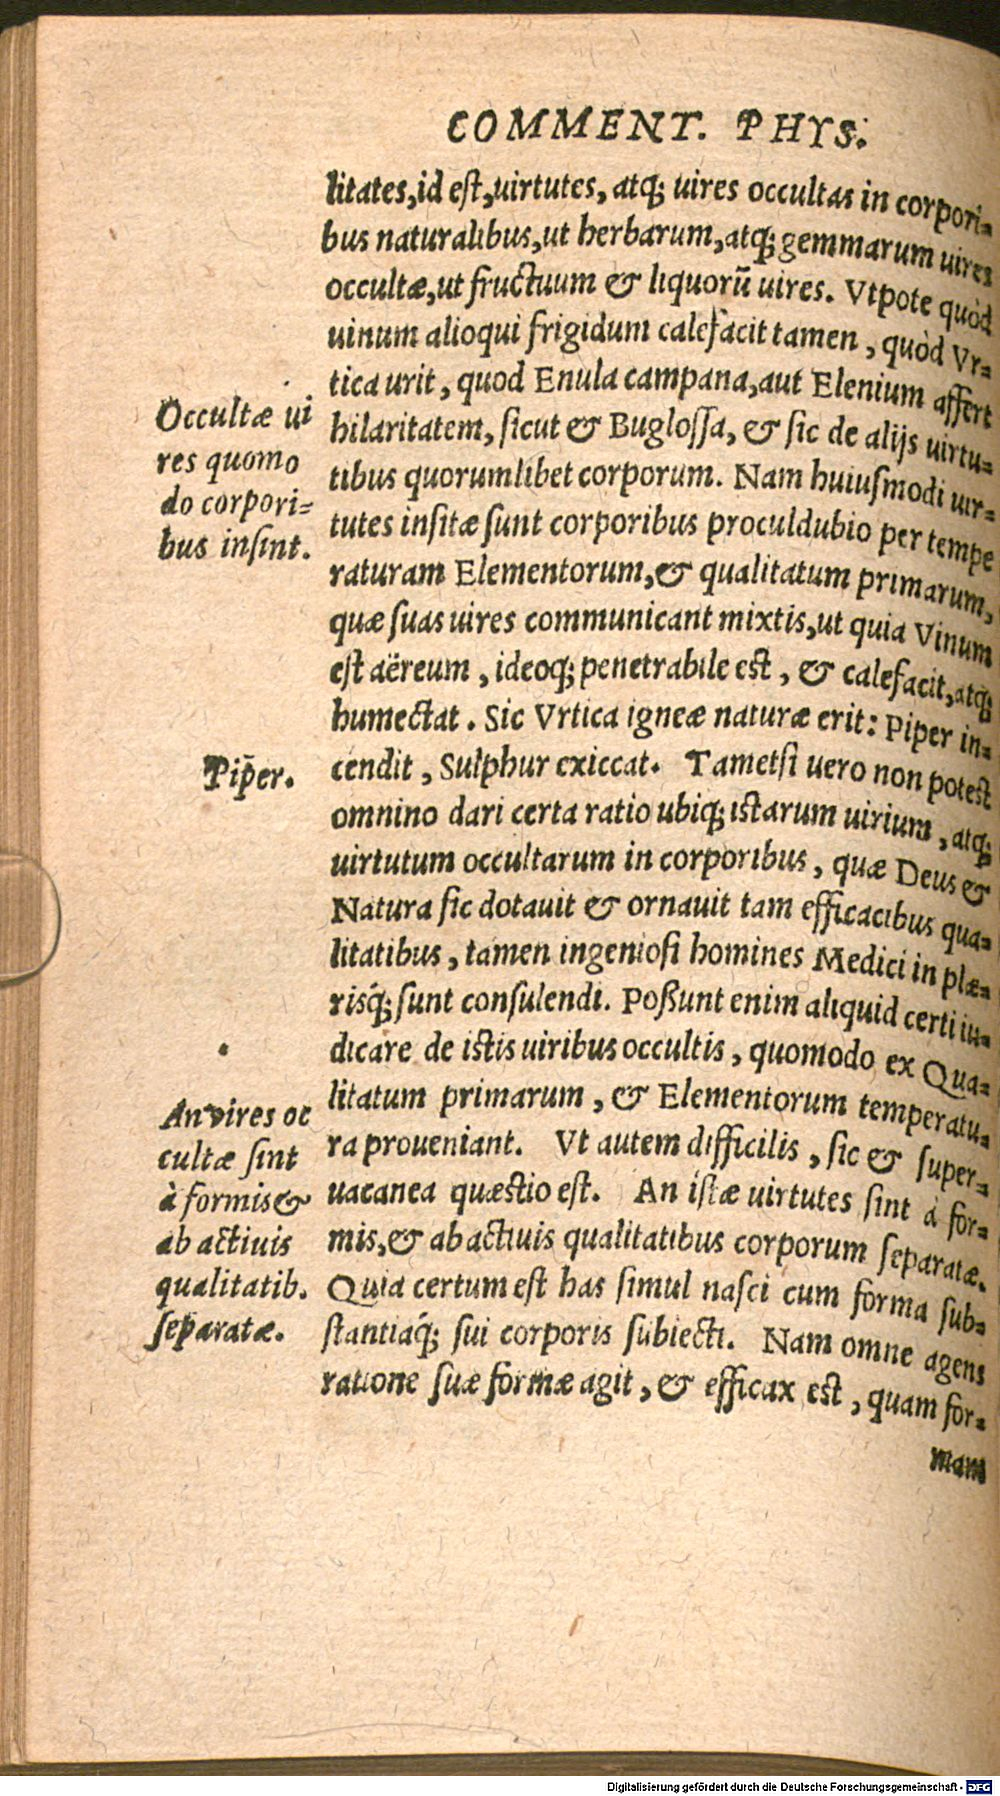 COMMENT. PHYS.
litates, id est, uirtutes, atq; uires occultas in corpori-
bus naturalibus, ut herbarum, atq; gemmarum uires
occultæ, ut fructuum & liquorū uires. Vtpote quòd
uinum alioqui frigidum calefacit tamen, quòd Vr-
tica urit, quod Enula campana, aut Elenium affert
hilaritatem, sicut & Buglossa, & sic de alijs uirtu-
tibus quorumlibet corporum. Nam huiusmodi uir-
tutes insitæ sunt corporibus proculdubio per tempe
raturam Elementorum, & qualitatum primarum,
quæ suas uires communicant mixtis, ut quia Vinum
est aëreum, ideoq; penetrabile est, & calefacit, atq;
humectat. Sic Vrtica igneæ naturæ erit: Piper in-
cendit, Sulphur exiccat. Tametsi uero non potest
omnino dari certa ratio ubiq; istarum uirium, atq;
uirtutum occultarum in corporibus, quæ Deus &
Natura sic dotauit & ornauit tam efficacibus qua-
litatibus, tamen ingeniosi homines Medici in plæ-
risq́; sunt consulendi. Possunt enim aliquid certi iu-
dicare de istis uiribus occultis, quomodo ex Qua-
litatum primarum, & Elementorum temperatu-
ra proueniant. Vt autem difficilis, sic & super-
uacanea quæstio est. An istæ uirtutes sint à for-
mis, & ab actiuis qualitatibus corporum separatæ.
Quia certum est has simul nasci cum forma sub-
stantiaq́; sui corporis subiecti. Nam omne agens
ratione suæ formæ agit, & efficax est, quam for-
mam
Occultæ ui
res quomo
do corpori-
bus insint.
Piper.
An vires oc
cultæ sint
à formis &
ab actiuis
qualitatib.
separatæ.
Digitalisierung gefördert durch die Deutsche Forschungsgemeinschaft - DFG